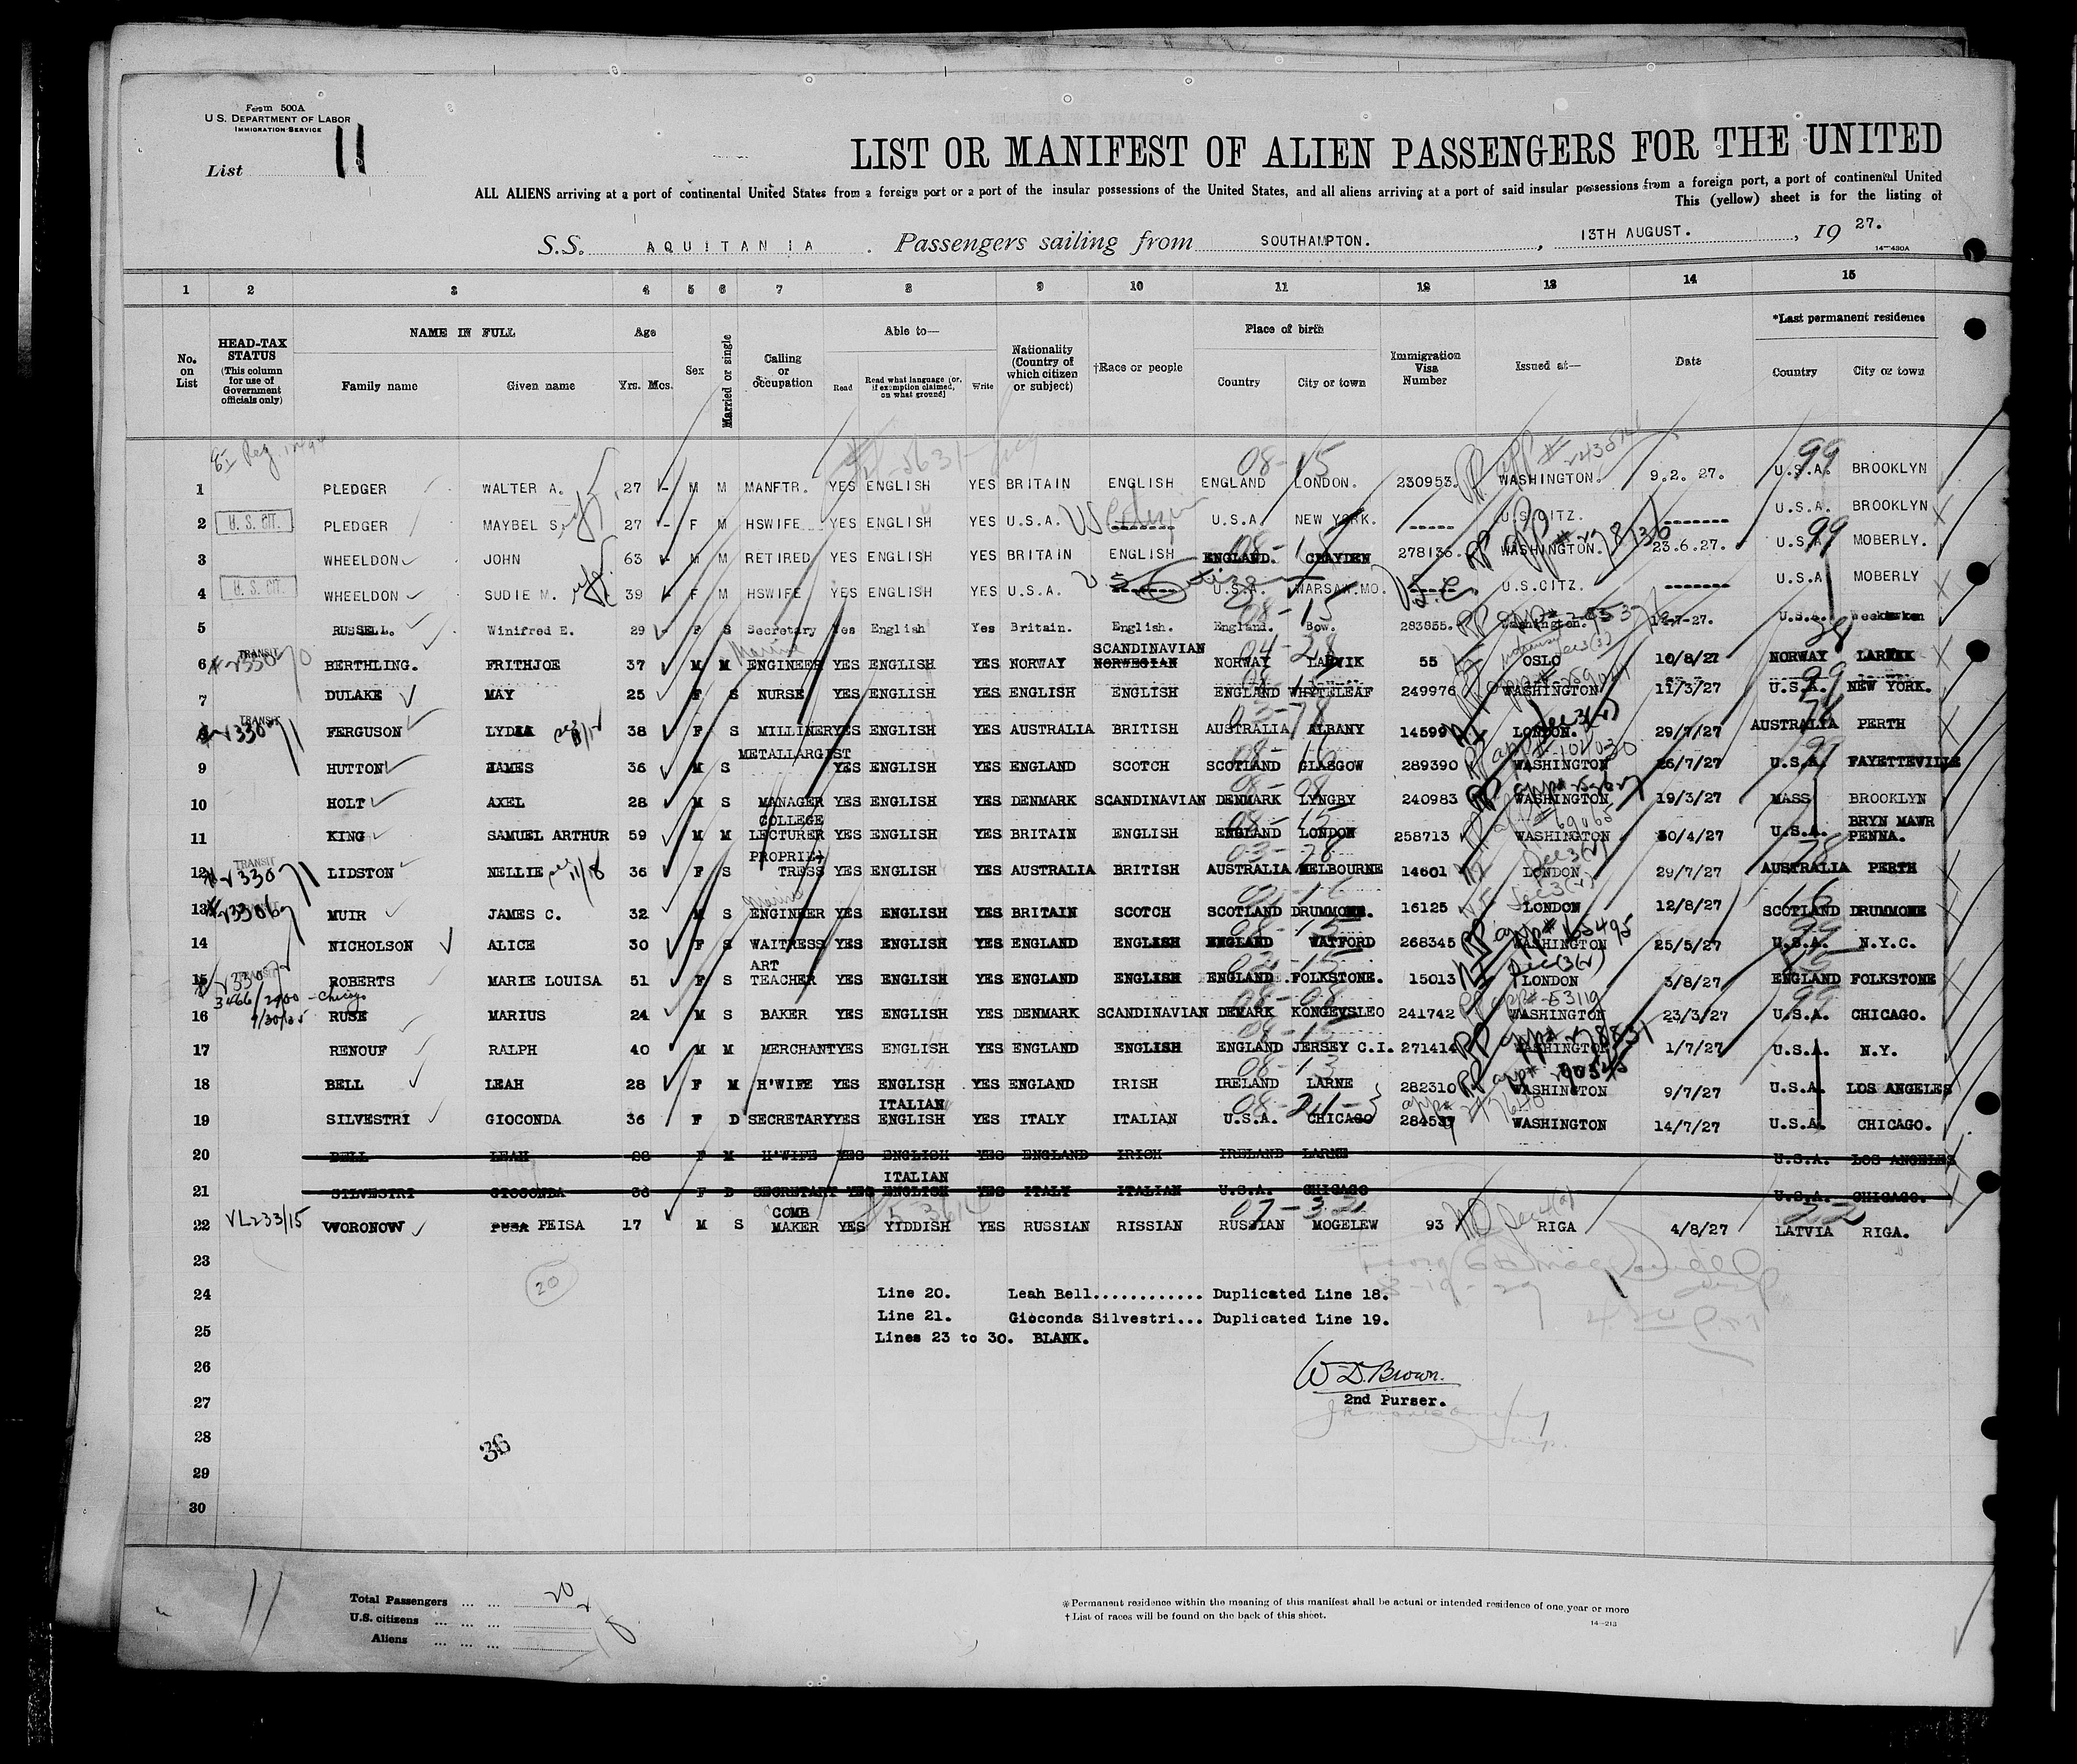 Form 500A
U.S. DEPARTMENT OF LABOR
IMMIGRATION SERVICE
List 11
LIST OR MANIFEST OF ALIEN PASSENGERS FOR THE UNITED
ALL ALIENS arriving at a port of continental United States from a foreign port or a port of the insular possessions of the United States, and all aliens arriving at a port of said insular possessions from a foreign port, a port of continental United
This (yellow) sheet is for the listing of
S.S. AQUITANIA. Passengers sailing from SOUTHAMPTON., 13TH AUGUST., 19 27.
14—430A
1 2 3 4 5 6 7 8 9 10 11 12 13 14 15
No. on List
HEAD-TAX STATUS (This column for use of Government officials only)
NAME IN FULL
Family name Given name
Age
Yrs. Mos.
Sex
Married or single
Calling or occupation
Able to—
Read Read what language [or, if exemption claimed, on what ground] Write
Nationality (Country of which citizen or subject)
†Race or people
Place of birth
Country City or town
Immigration Visa Number
Issued at—
Date
*Last permanent residence
Country City or town
1 PLEDGER WALTER A. 27 M M MANFTR. YES ENGLISH YES BRITAIN ENGLISH ENGLAND LONDON. 230953. WASHINGTON. 9.2.27. U.S.A. BROOKLYN
08-15 99
2 U.S. CIT. PLEDGER MAYBEL S. 27 F M HSWIFE YES ENGLISH YES U.S.A. ------ U.S.A. NEW YORK. ----- U.S.CITZ. ------- U.S.A. BROOKLYN
3 WHEELDON JOHN 63 M M RETIRED YES ENGLISH YES BRITAIN ENGLISH ENGLAND. CLAYDEN 278136. WASHINGTON. 23.6.27. U.S.A. MOBERLY.
4 U.S. CIT. WHEELDON SUDIE M. 39 F M HSWIFE YES ENGLISH YES U.S.A. ------- U.S.A. WARSAW.MO. ----- U.S.CITZ. ------- U.S.A. MOBERLY
5 RUSSELL. Winifred E. 29 F S Secretary Yes English Yes Britain. English. England. Bow. 283855. Washington. 12-7-27. U.S.A.
6 TRANSIT BERTHLING. FRITHJOE 37 M M Marine ENGINEER YES ENGLISH YES NORWAY SCANDINAVIAN NORWEGIAN NORWAY LARVIK 55 OSLO 10/8/27 NORWAY
7 DULAKE MAY 25 F S NURSE YES ENGLISH YES ENGLISH ENGLISH ENGLAND WHYTELEAF 249976 WASHINGTON 11/3/27 U.S.A. NEW YORK.
8 TRANSIT FERGUSON LYDIA 38 F S MILLINER YES ENGLISH YES AUSTRALIA BRITISH AUSTRALIA ALBANY 14599 LONDON. 29/7/27 AUSTRALIA PERTH
9 HUTTON JAMES 36 M S METALLARGIST YES ENGLISH YES ENGLAND SCOTCH SCOTLAND GLASGOW 289390 WASHINGTON 26/7/27 U.S.A. FAYETTEVILLE
10 HOLT AXEL 28 M S MANAGER YES ENGLISH YES DENMARK SCANDINAVIAN DENMARK LYNGBY 240983 WASHINGTON 19/3/27 MASS BROOKLYN
11 KING SAMUEL ARTHUR 59 M M COLLEGE LECTURER YES ENGLISH YES BRITAIN ENGLISH ENGLAND LONDON 258713 WASHINGTON 30/4/27 U.S.A. BRYN MAWR PENNA.
12 TRANSIT LIDSTON NELLIE 36 F S PROPRIE-TRESS YES ENGLISH YES AUSTRALIA BRITISH AUSTRALIA MELBOURNE 14601 LONDON 29/7/27 AUSTRALIA PERTH
13 MUIR JAMES C. 32 M S Marine ENGINEER YES ENGLISH YES BRITAIN SCOTCH SCOTLAND DRUMMONE. 16125 LONDON 12/8/27 SCOTLAND DRUMMONE
14 NICHOLSON ALICE 30 F S WAITRESS YES ENGLISH YES ENGLAND ENGLISH ENGLAND WATFORD 268345 WASHINGTON 25/5/27 U.S.A. N.Y.C.
15 TRANSIT ROBERTS MARIE LOUISA 51 F S ART TEACHER YES ENGLISH YES ENGLAND ENGLISH ENGLAND FOLKSTONE. 15013 LONDON 3/8/27 ENGLAND FOLKSTONE
16 RUSK MARIUS 24 M S BAKER YES ENGLISH YES DENMARK SCANDINAVIAN DEMARK KONGEVSLEO 241742 WASHINGTON 23/3/27 U.S.A. CHICAGO.
17 RENOUF RALPH 40 M M MERCHANT YES ENGLISH YES ENGLAND ENGLISH ENGLAND JERSEY C.I. 271414 WASHINGTON 1/7/27 U.S.A. N.Y.
18 BELL LEAH 28 F M H'WIFE YES ENGLISH YES ENGLAND IRISH IRELAND LARNE 282310 WASHINGTON 9/7/27 U.S.A. LOS ANGELES
19 SILVESTRI GIOCONDA 36 F D SECRETARY YES ITALIAN ENGLISH YES ITALY ITALIAN U.S.A. CHICAGO 284537 WASHINGTON 14/7/27 U.S.A. CHICAGO.
20 BELL LEAH 28 F M H'WIFE YES ENGLISH YES ENGLAND IRISH IRELAND LARNE U.S.A. LOS ANGELES
21 SILVESTRI GIOCONDA 36 F D SECRETARY YES ITALIAN ENGLISH YES ITALY ITALIAN U.S.A. CHICAGO U.S.A. CHICAGO.
22 WORONOW PEISA 17 M S COMB MAKER YES YIDDISH YES RUSSIAN RISSIAN RUSSIAN MOGELEW 93 RIGA 4/8/27 LATVIA RIGA.
23
24 Line 20. Leah Bell............ Duplicated Line 18.
Line 21. Gioconda Silvestri... Duplicated Line 19.
25 Lines 23 to 30. BLANK.
26 W D. Brown.
27 2nd Purser.
28
36
29
30
20
11
Total Passengers ... ... 20
U.S. citizens ... ... ... 2
Aliens ... ... ... 18
*Permanent residence within the meaning of this manifest shall be actual or intended residence of one year or more
†List of races will be found on the back of this sheet.
14—213